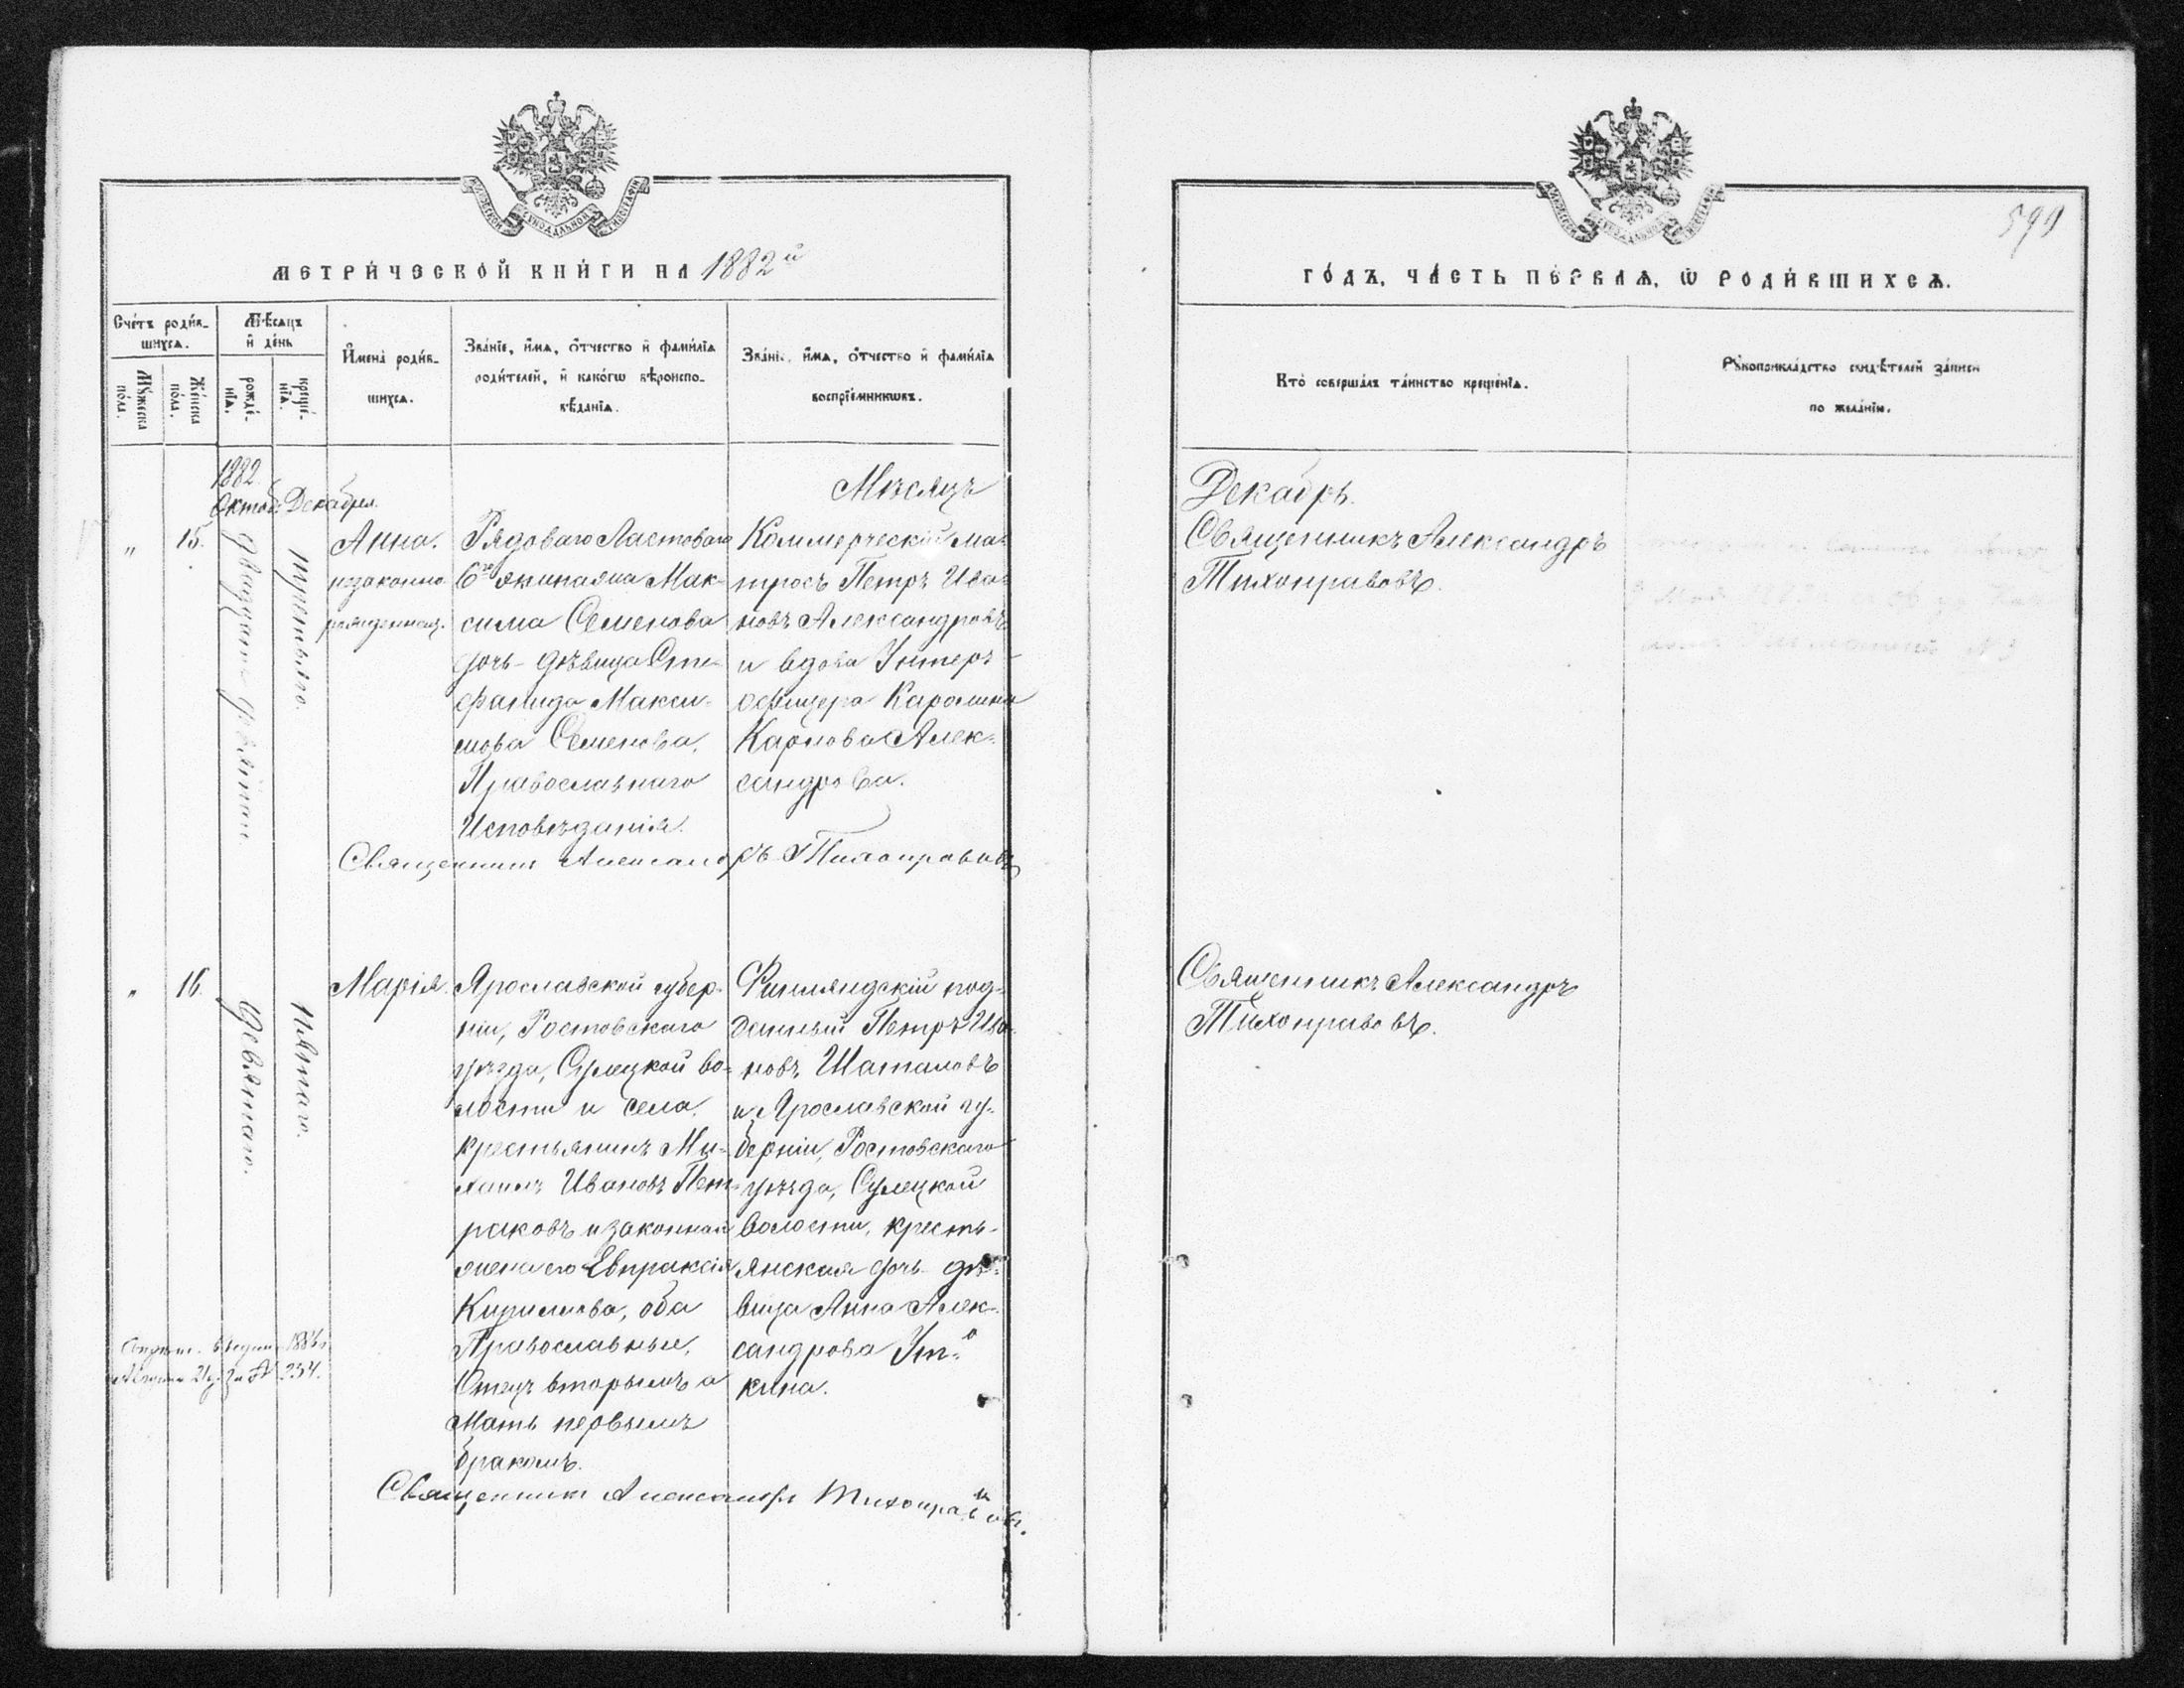 МЕТРИ́ЧЕСКОЙ КНИ́ГИ НА 1882й
Сче́тъ роди́в-
шихсѧ.
Мꙋ́жеска
по́ла.
Же́нска
по́ла.
Мѣ́сѧцъ
и҆ де́нь
рожде́-
нїѧ.
креще́-
нїѧ.
И҆мена̀ роди́в-
шихсѧ.
Зва́нїе, и҆́мѧ, ѻ҆́тчество и҆ фами́лїѧ
роди́телей, и҆ како́гѡ вѣроиспо-
вѣ́данїѧ.
Зва́нїе, и҆́мѧ, ѻ҆́тчество и҆ фами́лїѧ
воспрїе́мникѡвъ.
1882
Октяб. Декабря
Мѣсяцъ
" 15.
двадцать девятаго
третьяго.
Анна.
незаконно
рожденная.
Рядоваго Ластоваго
6го экипажа Мак-
сима Семенова
дочь - дѣвица Сте-
фанида Макси-
мова Семенова,
Православнаго
Исповѣданія.
Коммерческій ма-
тросъ Петръ Ива-
новъ Александровъ
и вдова Унтеръ-
офицера Каролина
Карлова Алек-
сандрова.
Священникъ Александръ Тихонравовъ
" 16.
Девятаго.
Пятаго.
Марія.
Ярославской губер-
ніи, Ростовскаго
уѣзда, Сулецкой во-
лости и села,
крестьянинъ Ми-
хаилъ Ивановъ Пет-
раковъ и законная
жена его Евпраксія
Кириллова, оба
Православные,
Отецъ вторымъ а
Мать первымъ
бракомъ.
Финляндскій под-
данный Петръ Ива-
новъ Шаталовъ
и Ярославской гу-
берніи, Ростовскаго
уѣзда, Сулецкой
волости, кресть-
янская дочь дѣ-
вица Анна Алек-
сандрова Ут-
кина.
Августа 21 д. за № 234.
Священникъ Александръ Тихонравовъ.
599
ГО́ДЪ, ЧА́СТЬ ПЕ́РВАѦ, Ѿ РОДИ́ВШИХСѦ.
Кто̀ соверша́лъ та́инство креще́нїѧ.
Рꙋкоприкла́дство свидѣ́телей за́писи
по жела́нїю.
Декабрь.
Священникъ Александръ
Тихонравовъ.
Священникъ Александръ
Тихонравовъ.